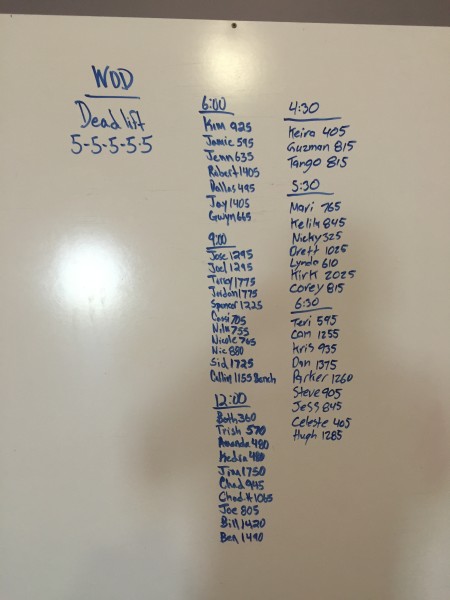 WOD
Deadlift
5-5-5-5-5
6:00
Kim 925
Jamie 595
Jenn 635
Robert 1405
Dallas 495
Jay 1405
Gwyn 665
9:00
Jose 1295
Joel 1295
1775
Jordan 1775
Spencer 1225
Cassi 705
755
Nicole 765
Nic 880
Sid 1725
Collin 1155 Bench
12:00
Beth 360
Trish 570
Amanda 480
Kedra 480
Jim 1750
Chad 945
Chad H 1065
Joe 805
Bill 1420
Ben 1490
4:30
Keira 405
Guzman 815
Tango 815
5:30
Mari 765
Kellie 845
Nicky 325
Brett 1025
Lynda 610
Kirk 2025
Corey 815
6:30
Teri 595
Cam 1255
Kris 935
Dan 1375
Parker 1260
Steve 905
Jess 845
Celeste 405
Hugh 1285